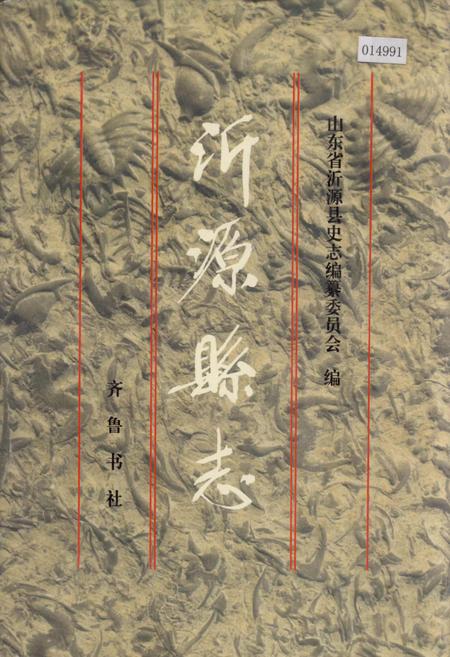 014991
山东省沂源县史志编纂委员会 编
沂源縣志
齐鲁书社